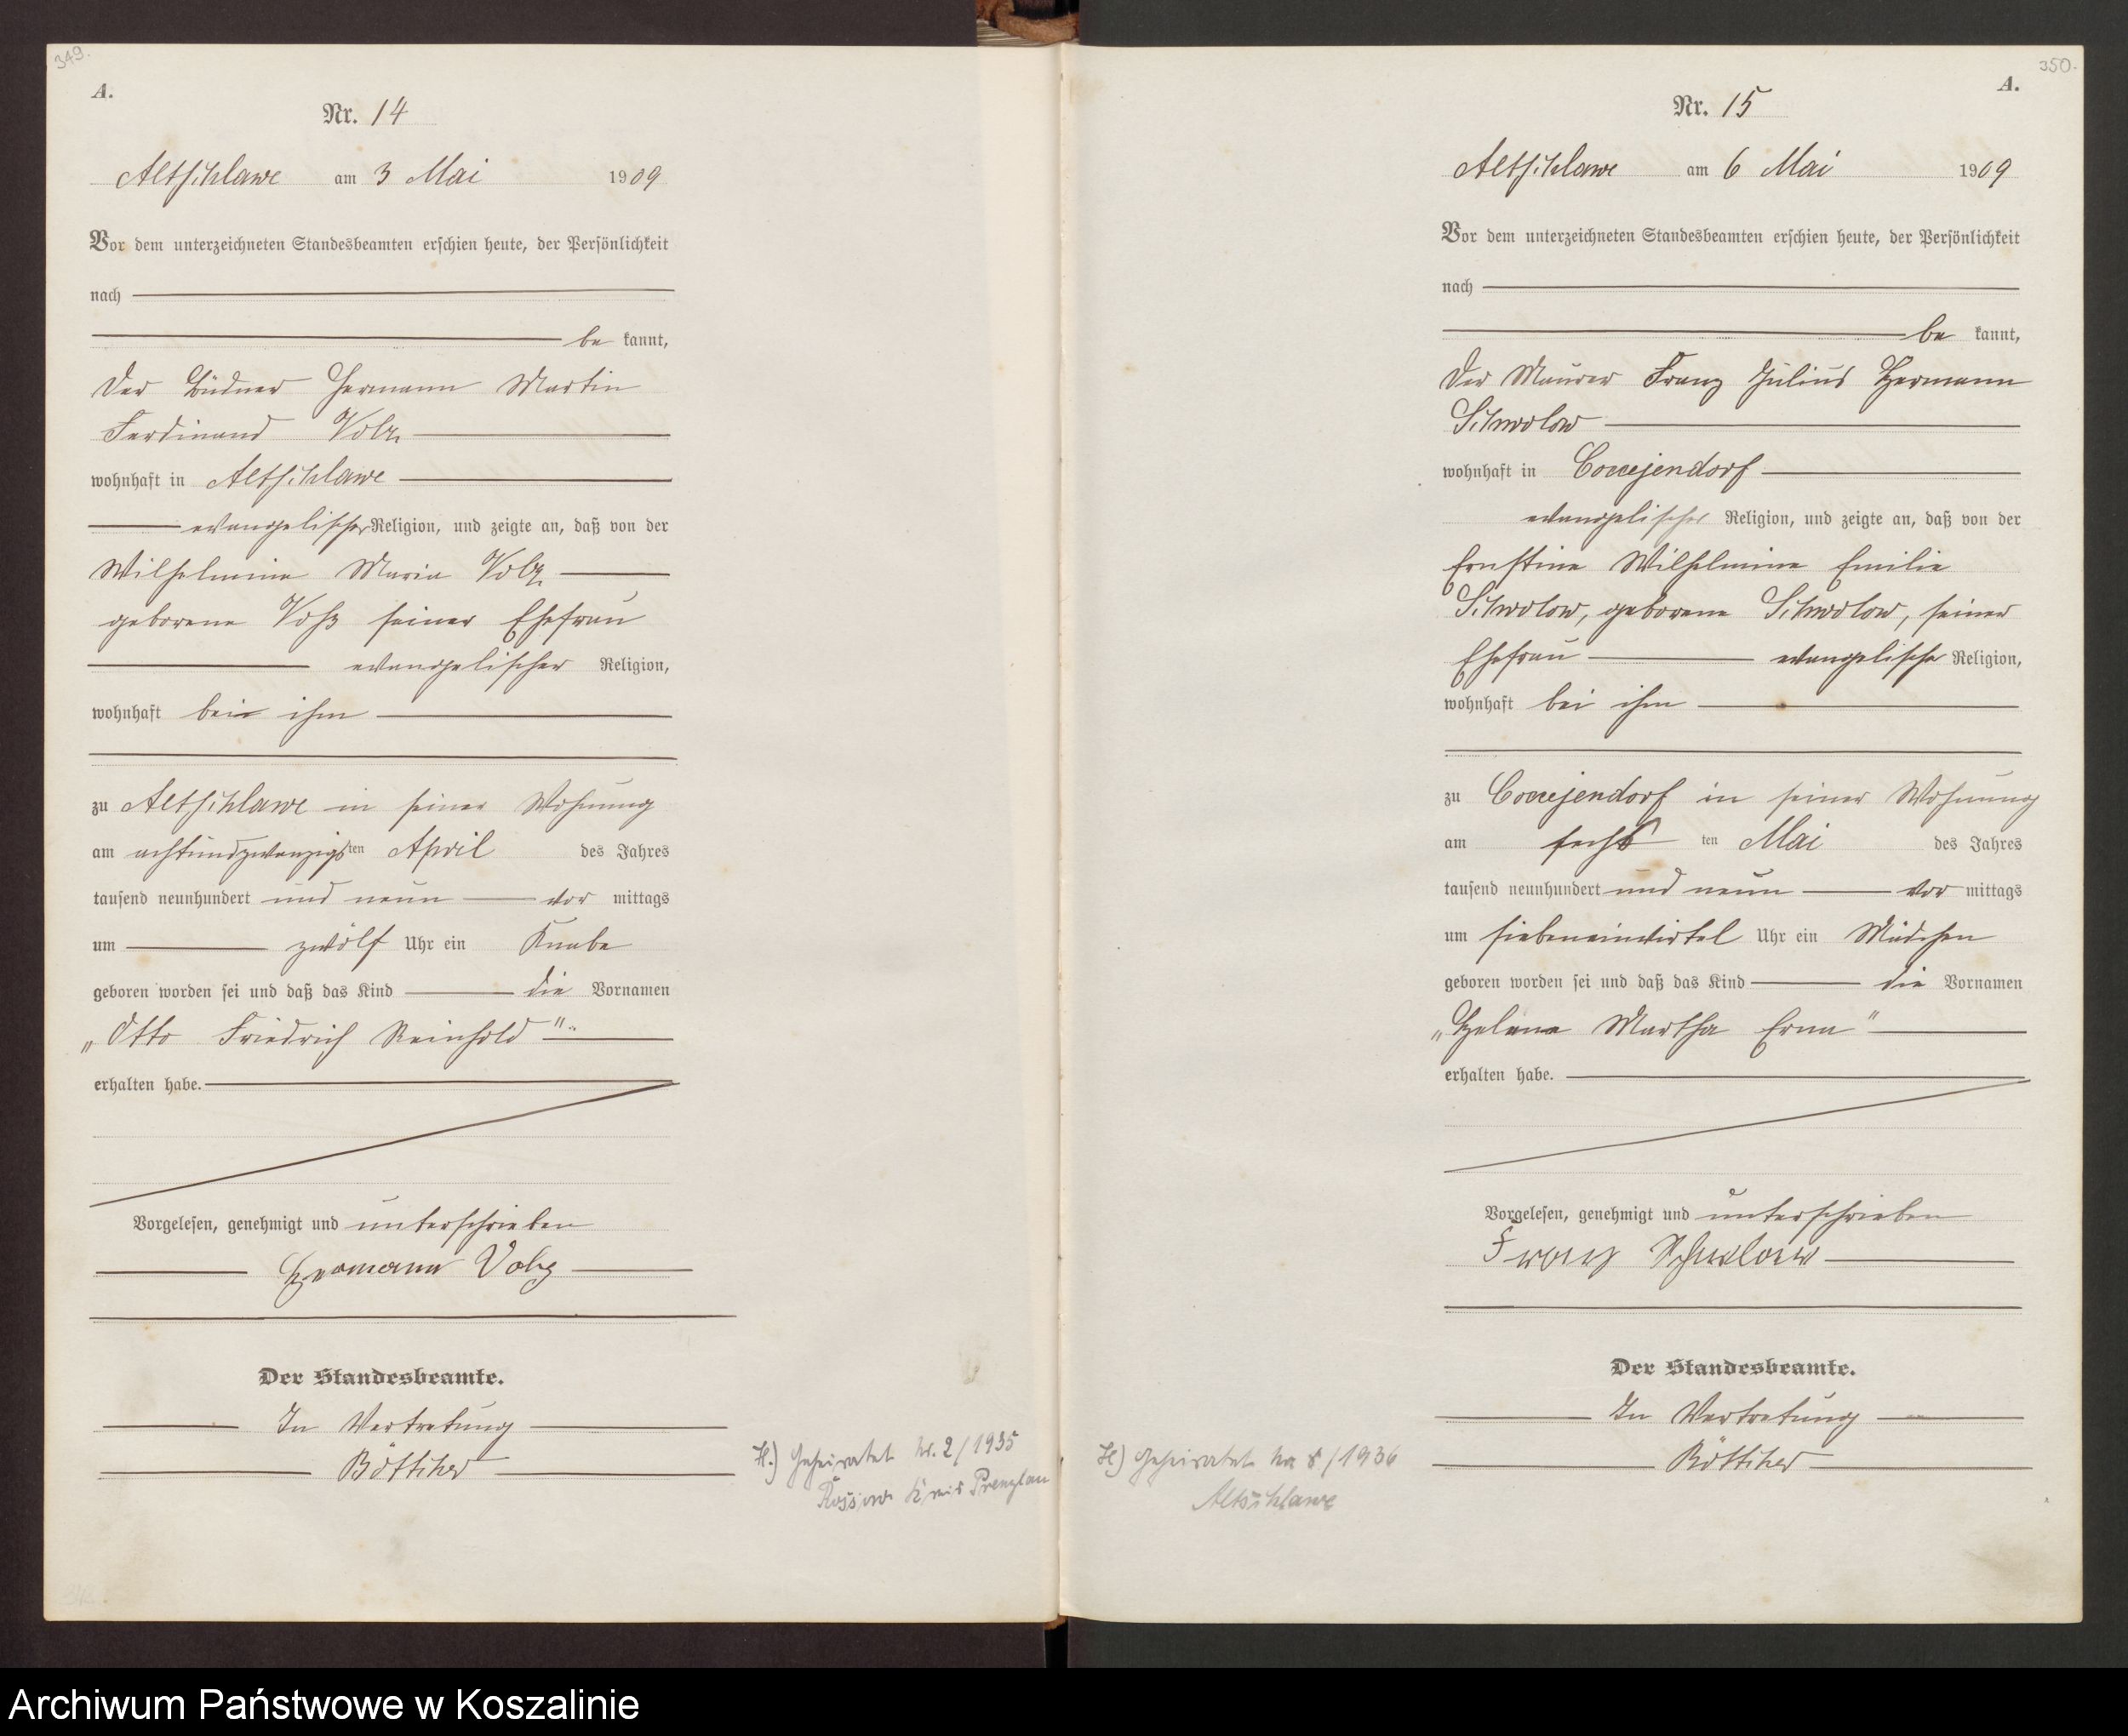 349.
A.
Nr. 14
Altschlawe am 3 Mai 1909
Vor dem unterzeichneten Standesbeamten erschien heute, der Persönlichkeit
nach
be kannt,
der Büdner Hermann Martin
Ferdinand Volz
wohnhaft in Altschlawe
evangelischer Religion, und zeigte an, daß von der
Wilhelmine Maria Volz
geborene Voß seiner Ehefrau
evangelischer Religion,
wohnhaft bei ihm
zu Altschlawe in seiner Wohnung
am achtundzwanzigsten April des Jahres
tausend neunhundert und neun vor mittags
um zwölf Uhr ein Knabe
geboren worden sei und daß das Kind die Vornamen
„Otto Friedrich Reinhold“
erhalten habe.
Vorgelesen, genehmigt und unterschrieben
Hermann Volz
Der Standesbeamte.
In Vertretung
Böttcher
H.) Geheiratet Nr. 2/1935
Kreis Prenzlau
350.
A.
Nr. 15
Altschlawe am 6 Mai 1909
Vor dem unterzeichneten Standesbeamten erschien heute, der Persönlichkeit
nach
be kannt,
der Maurer Franz Julius Hermann
Schwolow
wohnhaft in Coccejendorf
evangelischer Religion, und zeigte an, daß von der
Ernstine Wilhelmine Emilie
Schwolow, geborene Schwolow, seiner
Ehefrau evangelischer Religion,
wohnhaft bei ihm
zu Coccejendorf in seiner Wohnung
am sechsten Mai des Jahres
tausend neunhundert und neun vor mittags
um siebeneinviertel Uhr ein Mädchen
geboren worden sei und daß das Kind die Vornamen
„Helene Martha Erna“
erhalten habe.
Vorgelesen, genehmigt und unterschrieben
Franz Schwolow
Der Standesbeamte.
In Vertretung
Böttcher
H) Geheiratet No 8/1936
Altschlawe
Archiwum Państwowe w Koszalinie